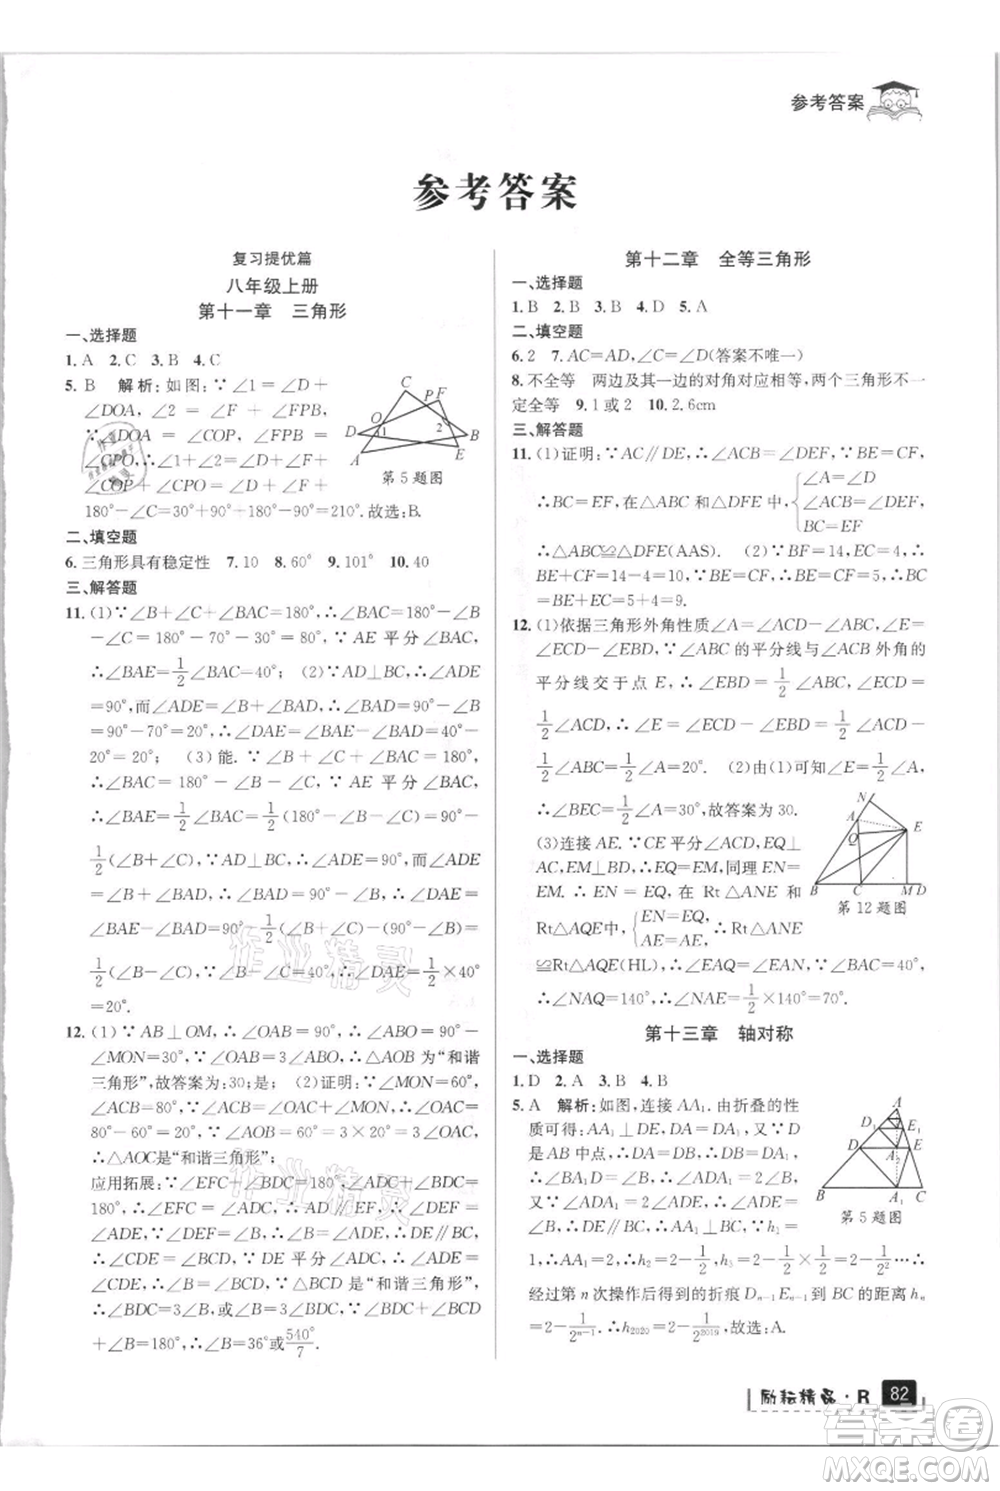 参考答案
参考答案
复习提优篇
八年级上册
第十一章　三角形
一、选择题
1. A　2. C　3. B　4. C
5. B　解析:如图:∵∠1=∠D+
∠DOA,∠2=∠F+∠FPB,
∵∠DOA=∠COP,∠FPB=
∠CPO,∴∠1+∠2=∠D+
∠COP+∠CPO+∠F=∠D+∠F+
180°-∠C=30°+90°+180°-90°=210°.故选:B.
C
P
F
O
1
2
D
B
A
E
第5题图
二、填空题
6. 三角形具有稳定性　7. 10　8. 60°　9. 101°　10. 40
三、解答题
11. (1)∵∠B+∠C+∠BAC=180°,∴∠BAC=180°-∠B
-∠C=180°-70°-30°=80°;∵AE平分∠BAC,
∴∠BAE=1/2∠BAC=40°;　(2)∵AD⊥BC,∴∠ADE
=90°,而∠ADE=∠B+∠BAD,∴∠BAD=90°-∠B
=90°-70°=20°,∴∠DAE=∠BAE-∠BAD=40°-
20°=20°;　(3)能.∵∠B+∠C+∠BAC=180°,
∴∠BAC=180°-∠B-∠C,∵AE平分∠BAC,
∴∠BAE=1/2∠BAC=1/2(180°-∠B-∠C)=90°-
1/2(∠B+∠C),∵AD⊥BC,∴∠ADE=90°,而∠ADE
=∠B+∠BAD,∴∠BAD=90°-∠B,∴∠DAE=
∠BAE-∠BAD=90°-1/2(∠B+∠C)-(90°-∠B)=
1/2(∠B-∠C),∵∠B-∠C=40°,∴∠DAE=1/2×40°
=20°.
12. (1)∵AB⊥OM,∴∠OAB=90°,∴∠ABO=90°-
∠MON=30°,∵∠OAB=3∠ABO,∴△AOB为“和谐
三角形”,故答案为:30;是;　(2)证明:∵∠MON=60°,
∠ACB=80°,∵∠ACB=∠OAC+∠MON,∴∠OAC=
80°-60°=20°,∵∠AOB=60°=3×20°=3∠OAC,
∴△AOC是“和谐三角形”;
应用拓展:∵∠EFC+∠BDC=180°,∠ADC+∠BDC=
180°,∴∠EFC=∠ADC,∴AD∥EF,∴∠DEF=
∠ADE,∵∠DEF=∠B,∴∠B=∠ADE,∴DE∥BC,
∴∠CDE=∠BCD,∵DE平分∠ADC,∴∠ADE=
∠CDE,∴∠B=∠BCD,∵△BCD是“和谐三角形”,
∴∠BDC=3∠B,或∠B=3∠BDC,∵∠BDC+∠BCD+
∠B=180°,∴∠B=36°或∠B=540°/7.
第十二章　全等三角形
一、选择题
1. B　2. B　3. B　4. D　5. A
二、填空题
6. 2　7. AC=AD,∠C=∠D(答案不唯一)
8. 不全等　两边及其一边的对角对应相等,两个三角形不一
定全等　9. 1或2　10. 2.6cm
三、解答题
11. (1)证明:∵AC∥DE,∴∠ACB=∠DEF,∵BF=EC,
∴BC=EF,在△ABC和△DFE中{∠A=∠D
∠ACB=∠DEF,
BC=EF
∴△ABC≌△DFE(AAS).　(2)∵BF=14,EC=4,
∴BE+CF=14-4=10,∵BE=CF,∴BE=CF=5,
∴BC=BE+EC=5+4=9.
12. (1)依据三角形外角性质∠A=∠ACD-∠ABC,∠E=
∠ECD-∠EBD,∵∠ABC的平分线与∠ACB外角的
平分线交于点E,∴∠EBD=1/2∠ABC,∠ECD=
1/2∠ACD,∴∠E=∠ECD-∠EBD=1/2∠ACD-
1/2∠ABC=1/2∠A=20°.　(2)由(1)可知∠E=1/2∠A,
∴∠BEC=1/2∠A=30°,故答案为30.
(3)连接AE.∵CE平分∠ACD,EN⊥
AC,EM⊥BD,∴EN=EM,同理EN=
EM.∴EN=EQ,在Rt△ANE和
Rt△AQE中{EN=EQ
AE=AE,∴Rt△ANE
≌Rt△AQE(HL),∴∠NAE=∠QAE,∵∠BAC=40°,
∴∠NAQ=140°,∴∠NAE=1/2∠NAQ=1/2×140°=70°.
N
A
Q
E
B
C
M D
第12题图
第十三章　轴对称
一、选择题
1. D　2. A　3. B　4. B
5. A　解析:如图,连接AA₁,由折叠的性
质可得:AA₁⊥DE,DA=DA₁,又∵D
是AB中点,∴DA=DB,∴DB=
DA₁,∴∠BA₁D=∠B,∴∠ADA₁=
2∠B,又∵∠ADA₁=2∠ADE,∴∠ADE=∠B,∴DE∥
BC,∴AA₁⊥BC,∴AA₁=2,∴h₁=2-1=1,同理,h₂=
1,∴AA₁=2,∴h₂=2-1/2,h₃=2-1/2×1/2=2-1/2²…∴
经过第n次操作后得到的折痕Dₙ₋₁Eₙ₋₁到BC的距离hₙ
=2-1/2ⁿ⁻¹.∴h₂₀₂₀=2-1/2²⁰¹⁹,故选:A.
A
D₁
E₁
D
E
B
A₁
C
第5题图
励耘精品·R　82
答案圈
MXQE.COM
作业精灵
作业精灵